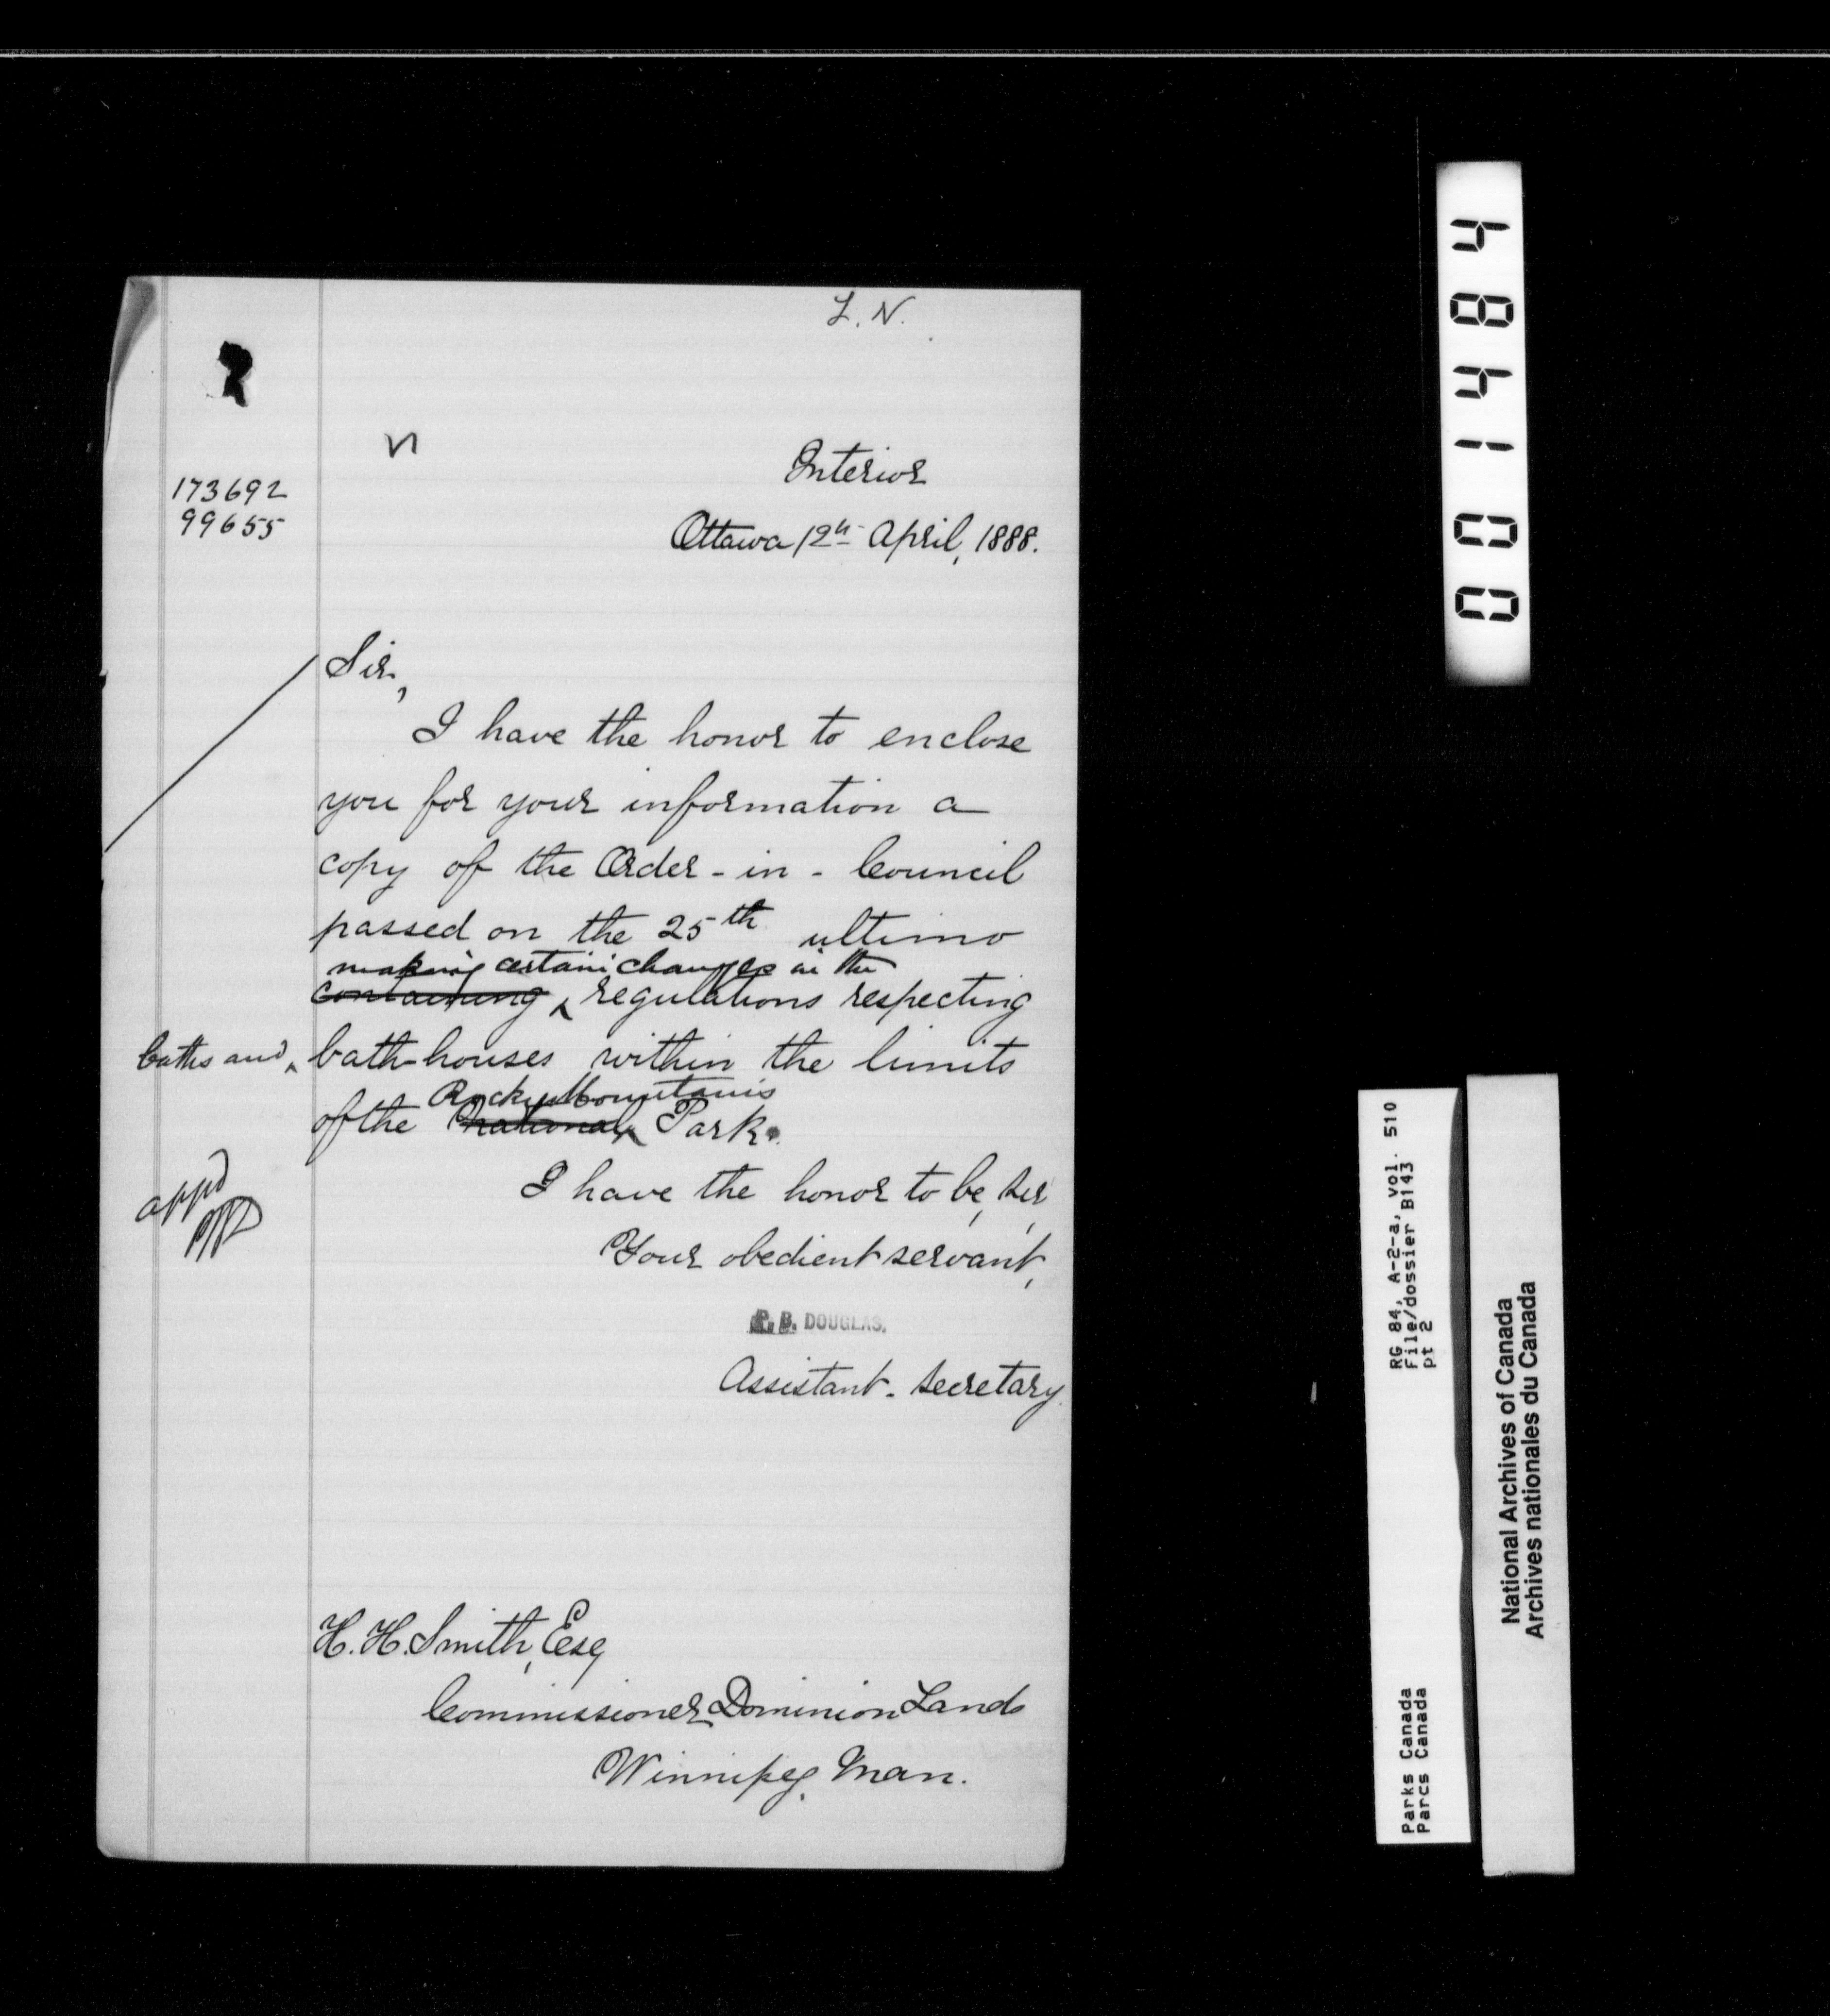 L. N.
173692
99655
Interior
Ottawa 12th April, 1888.
Sir,
I have the honor to enclose
you for your information a
copy of the Order-in-Council
passed on the 25th ultimo
making certain changes in the
containing regulations respecting
baths and bath-houses within the limits
Rocky Mountains
of the National Park.
appd
I have the honor to be, sir,
Your obedient servant,
P. B. DOUGLAS.
Assistant-Secretary.
H. H. Smith, Esq
Commissioner Dominion Lands
Winnipeg, Man.
001484
RG 84, A-2-a, vol. 510
File/dossier B143
pt 2
Parks Canada
Parcs Canada
National Archives of Canada
Archives nationales du Canada